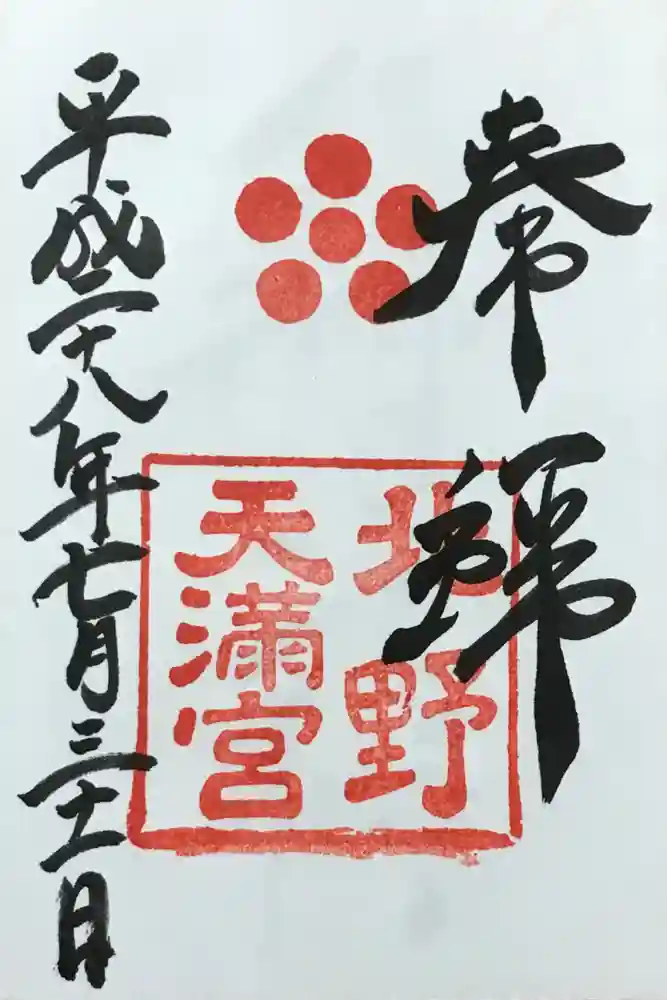 奉拜
北野
天滿宮
平成二十八年七月三十一日